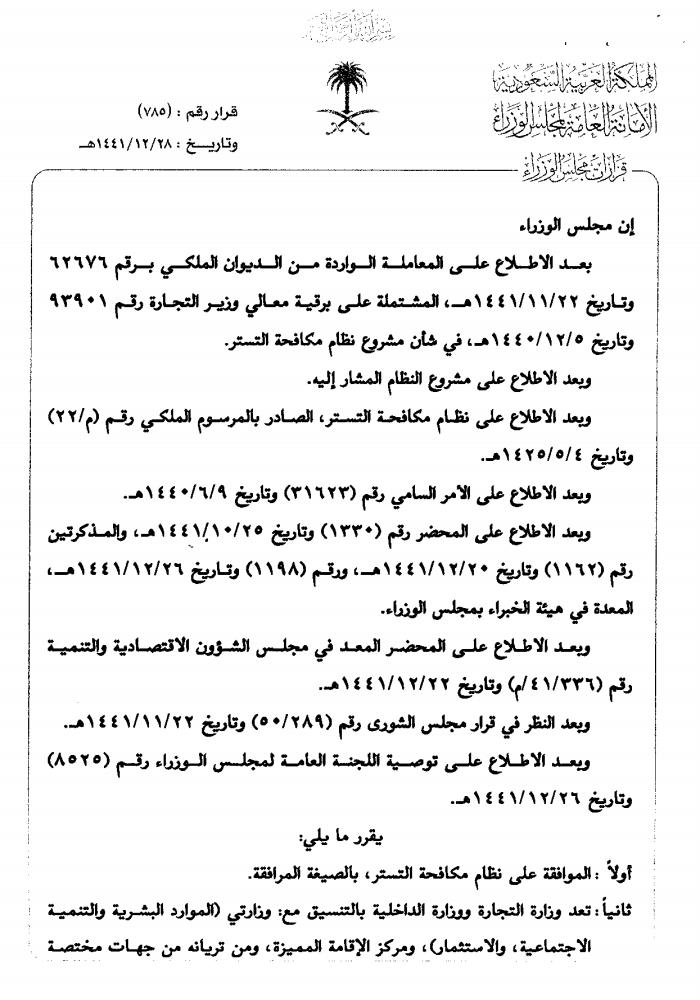 بسم الله الرحمن الرحيم
المملكة العربية السعودية
الأمانة العامة لمجلس الوزراء
قرارات مجلس الوزراء
قرار رقم : (٧٨٥)
وتاريخ : ١٤٤١/١٢/٢٨هـ
إن مجلس الوزراء
بعد الاطلاع على المعاملة الواردة من الديوان الملكي برقم ٦٢٦٧٦
وتاريخ ١٤٤١/١١/٢٢هـ، المشتملة على برقية معالي وزير التجارة رقم ٩٣٩٠١
وتاريخ ١٤٤٠/١٢/٥هـ، في شأن مشروع نظام مكافحة التستر.
وبعد الاطلاع على مشروع النظام المشار إليه.
وبعد الاطلاع على نظام مكافحة التستر، الصادر بالمرسوم الملكي رقم (م/٢٢)
وتاريخ ١٤٢٥/٥/٤هـ.
وبعد الاطلاع على الأمر السامي رقم (٣١٦٢٣) وتاريخ ١٤٤٠/٦/٩هـ.
وبعد الاطلاع على المحضر رقم (١٣٣٠) وتاريخ ١٤٤١/١٠/٢٥هـ، والمذكرتين
رقم (١١٦٢) وتاريخ ١٤٤١/١٢/٢٠هـ، ورقم (١١٩٨) وتاريخ ١٤٤١/١٢/٢٦هـ،
المعدة في هيئة الخبراء بمجلس الوزراء.
وبعد الاطلاع على المحضر المعد في مجلس الشؤون الاقتصادية والتنمية
رقم (٤١/٣٣٦/م) وتاريخ ١٤٤١/١٢/٢٢هـ.
وبعد النظر في قرار مجلس الشورى رقم (٥٠/٢٨٩) وتاريخ ١٤٤١/١١/٢٢هـ.
وبعد الاطلاع على توصية اللجنة العامة لمجلس الوزراء رقم (٨٥٢٥)
وتاريخ ١٤٤١/١٢/٢٦هـ.
يقرر ما يلي:
أولاً : الموافقة على نظام مكافحة التستر، بالصيغة المرافقة.
ثانياً : تعد وزارة التجارة ووزارة الداخلية بالتنسيق مع: وزارتي (الموارد البشرية والتنمية
الاجتماعية، والاستثمار)، ومركز الإقامة المميزة، ومن تريانه من جهات مختصة